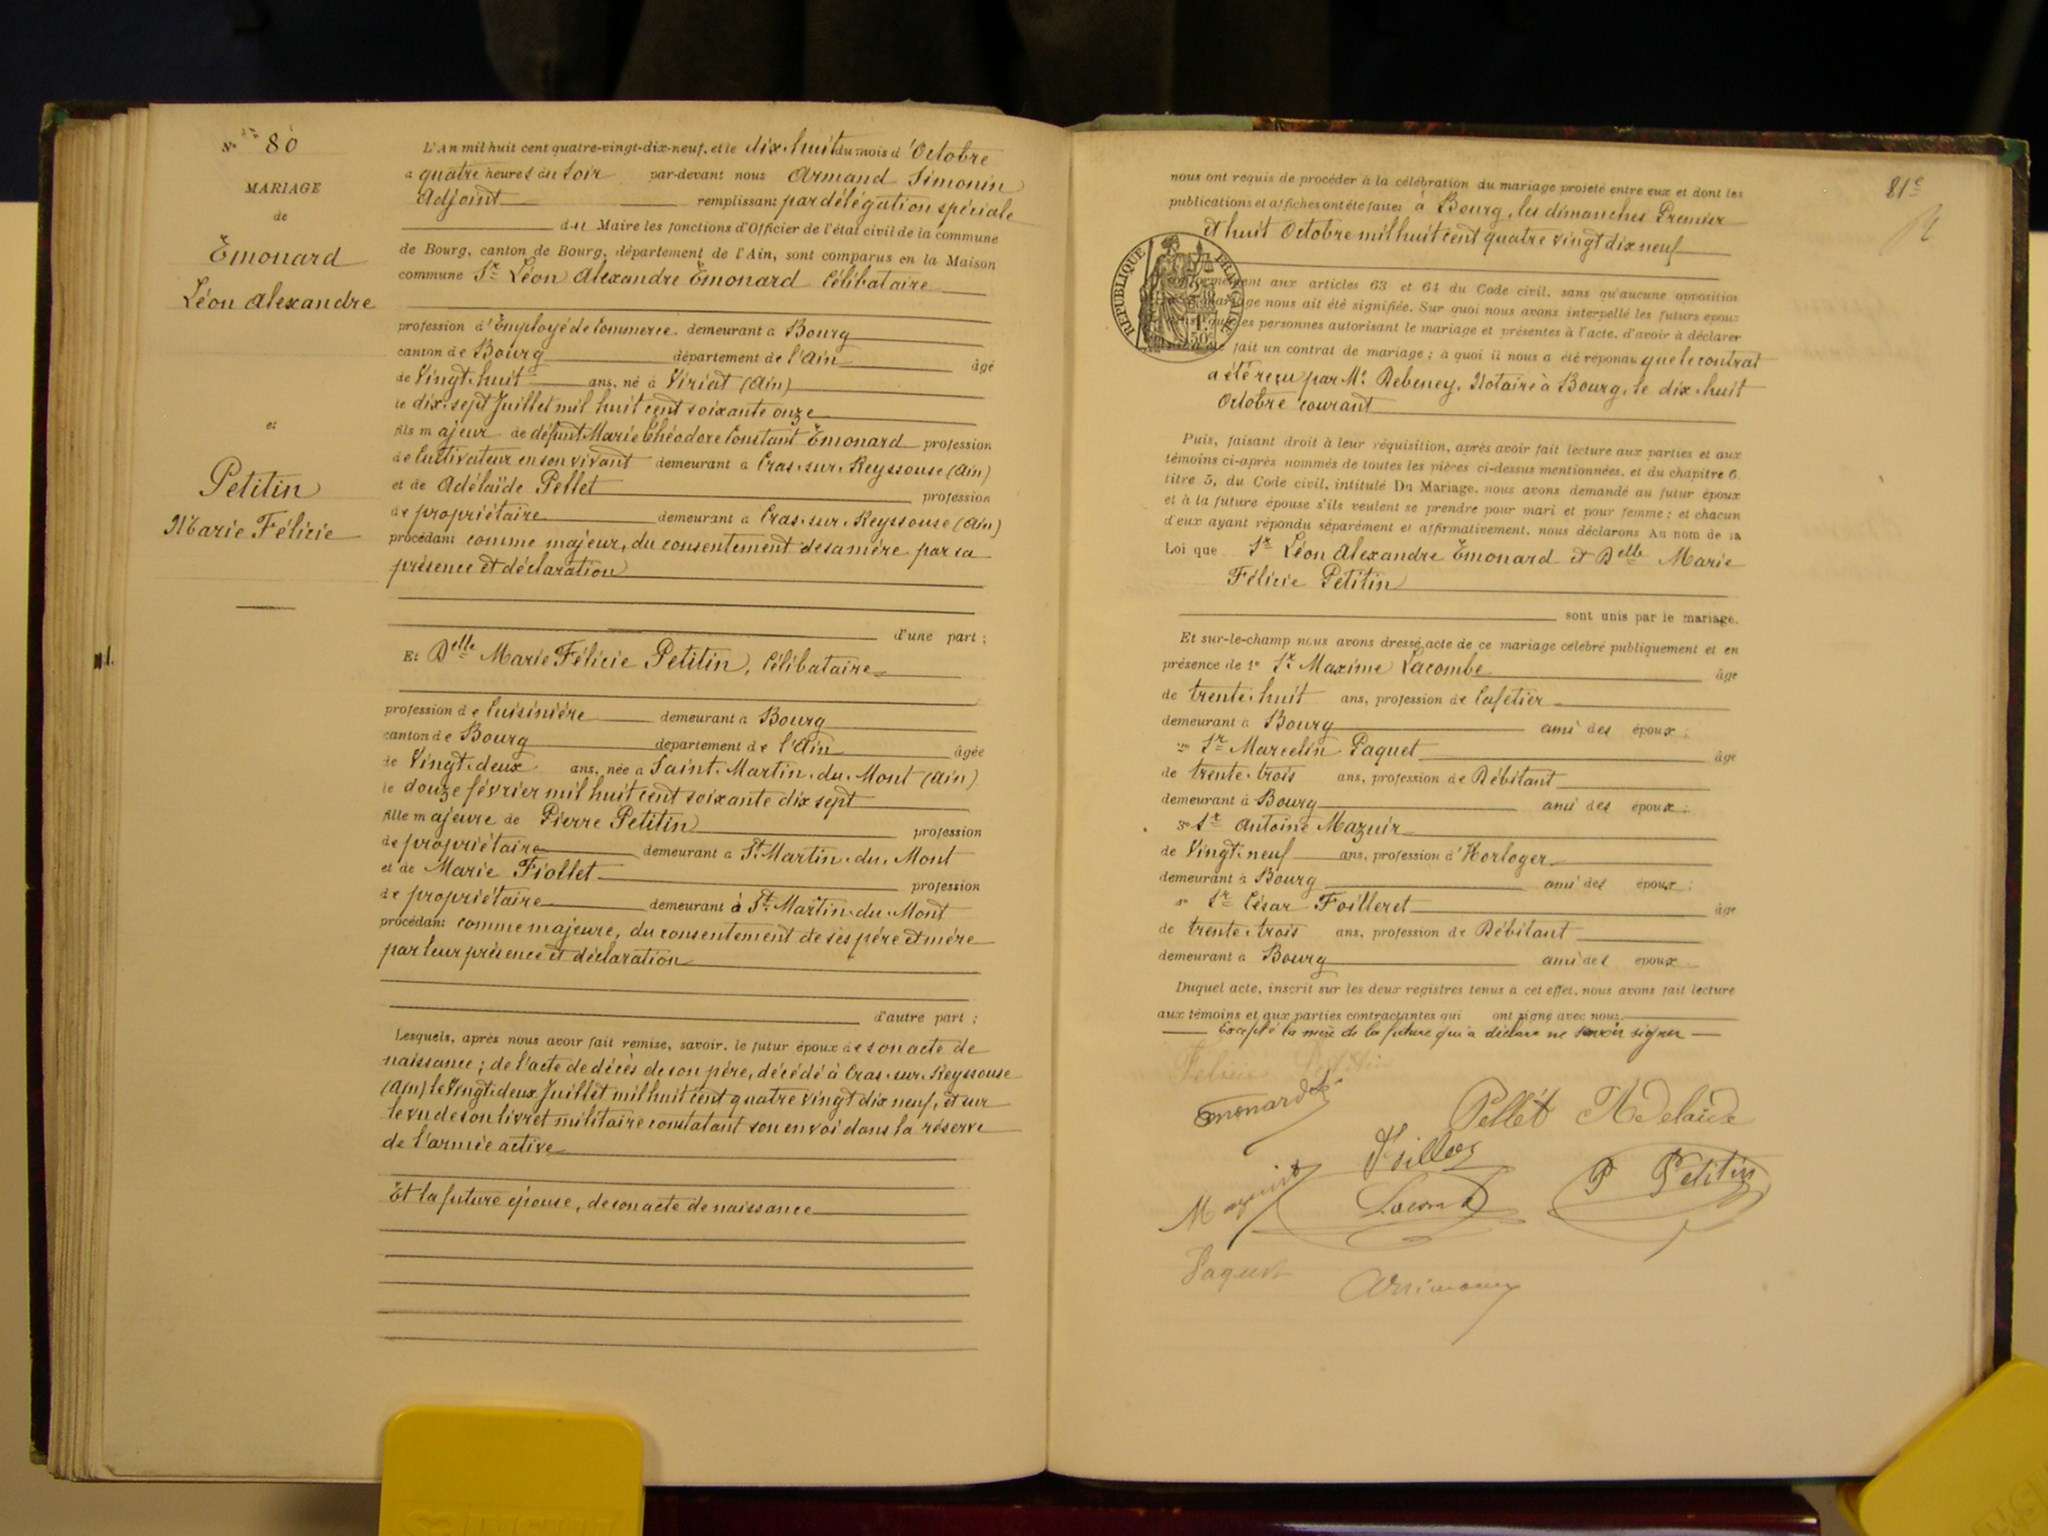 N° 80
MARIAGE
de
Émonard
Léon Alexandre
et
Petitin
Marie Félicie
L'An mil huit cent quatre-vingt-dix-neuf, et le dix-huit du mois d'Octobre
a quatre heures du soir par-devant nous Armand Simonin
Adjoint remplissant par délégation spéciale
du Maire les fonctions d'Officier de l'état civil de la commune
de Bourg, canton de Bourg, département de l'Ain, sont comparus en la Maison
commune Sr Léon Alexandre Émonard Célibataire
profession d'Employé de Commerce demeurant à Bourg
canton de Bourg département de l'Ain âgé
de Vingt-huit ans, né à Viriat (Ain)
le dix-sept Juillet mil huit cent soixante onze
fils majeur de défunt Marie Théodore Constant Émonard profession
de Cultivateur en son vivant demeurant à Cras-sur-Reyssouse (Ain)
et de Adélaïde Pellet profession
de propriétaire demeurant à Cras-sur-Reyssouse (Ain)
procédant comme majeur, du consentement de sa mère par sa
présence et déclaration
d'une part ;
Et Delle Marie Félicie Petitin, Célibataire
profession de Cuisinière demeurant à Bourg
canton de Bourg département de l'Ain âgée
de Vingt-deux ans, née à Saint-Martin-du-Mont (Ain)
le douze février mil huit cent soixante dix sept
fille majeure de Pierre Petitin profession
de propriétaire demeurant à St Martin-du-Mont
et de Marie Fiollet profession
de propriétaire demeurant à St Martin-du-Mont
procédant comme majeure, du consentement de ses père et mère
par leur présence et déclaration
d'autre part ;
Lesquels, après nous avoir fait remise, savoir, le futur époux de son acte de
naissance ; de l'acte de décès de son père, décédé à Cras-sur-Reyssouse
(Ain) le Vingt-deux Juillet mil huit cent quatre vingt dix neuf, et sur
le vu de son livret militaire constatant son envoi dans la réserve
de l'armée active
Et la future épouse, de son acte de naissance
81e
nous ont requis de procéder à la célébration du mariage projeté entre eux et dont les
publications et affiches ont été faites à Bourg, les dimanches Premier
et huit Octobre mil huit cent quatre vingt dix neuf
RÉPUBLIQUE FRANÇAISE
aux articles 63 et 64 du Code civil, sans qu'aucune opposition
nous ait été signifiée. Sur quoi nous avons interpellé les futurs époux
les personnes autorisant le mariage et présentes à l'acte, d'avoir à déclarer
fait un contrat de mariage ; à quoi il nous a été répondu que le contrat
a été reçu par Me Debeney, Notaire à Bourg, le dix-huit
Octobre courant
Puis, faisant droit à leur réquisition, après avoir fait lecture aux parties et aux
témoins ci-après nommés de toutes les pièces ci-dessus mentionnées, et du chapitre 6,
titre 5, du Code civil, intitulé Du Mariage, nous avons demandé au futur époux
et à la future épouse s'ils veulent se prendre pour mari et pour femme ; et chacun
d'eux ayant répondu séparément et affirmativement, nous déclarons Au nom de la
Loi que Sr Léon Alexandre Émonard et Delle Marie
Félicie Petitin
sont unis par le mariage.
Et sur-le-champ nous avons dressé acte de ce mariage célébré publiquement et en
présence de 1° Sr Maxime Lacombe âgé
de trente-huit ans, profession de Cafetier
demeurant à Bourg ami des époux ;
2° Sr Marcelin Paquet âgé
de trente-trois ans, profession de Débitant
demeurant à Bourg ami des époux ;
3° Sr Antoine Mazuir
de Vingt-neuf ans, profession d'Horloger
demeurant à Bourg ami des époux ;
4° Sr César Foilleret âgé
de trente-trois ans, profession de Débitant
demeurant à Bourg ami des époux
Duquel acte, inscrit sur les deux registres tenus à cet effet, nous avons fait lecture
aux témoins et aux parties contractantes qui ont signé avec nous
Excepté la mère de la future qui a déclaré ne savoir signer
Félicie Petitin
Emonard
Pellet Adelaïde
Mazuir
Lacombe
P Petitin
Paquet